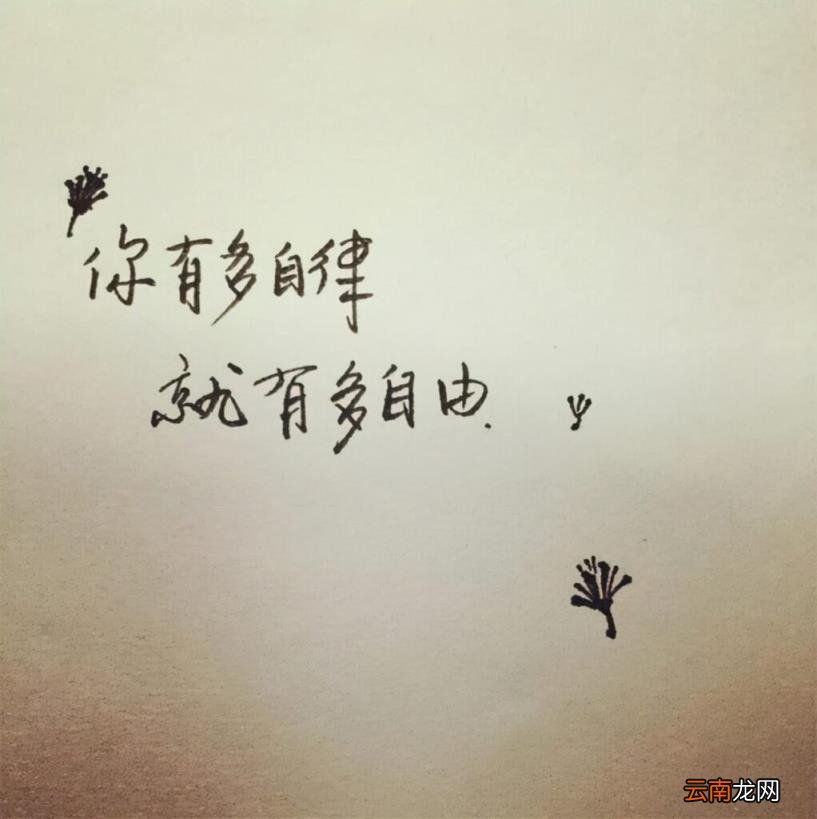 你有多自律
就有多自由.
云南龙网